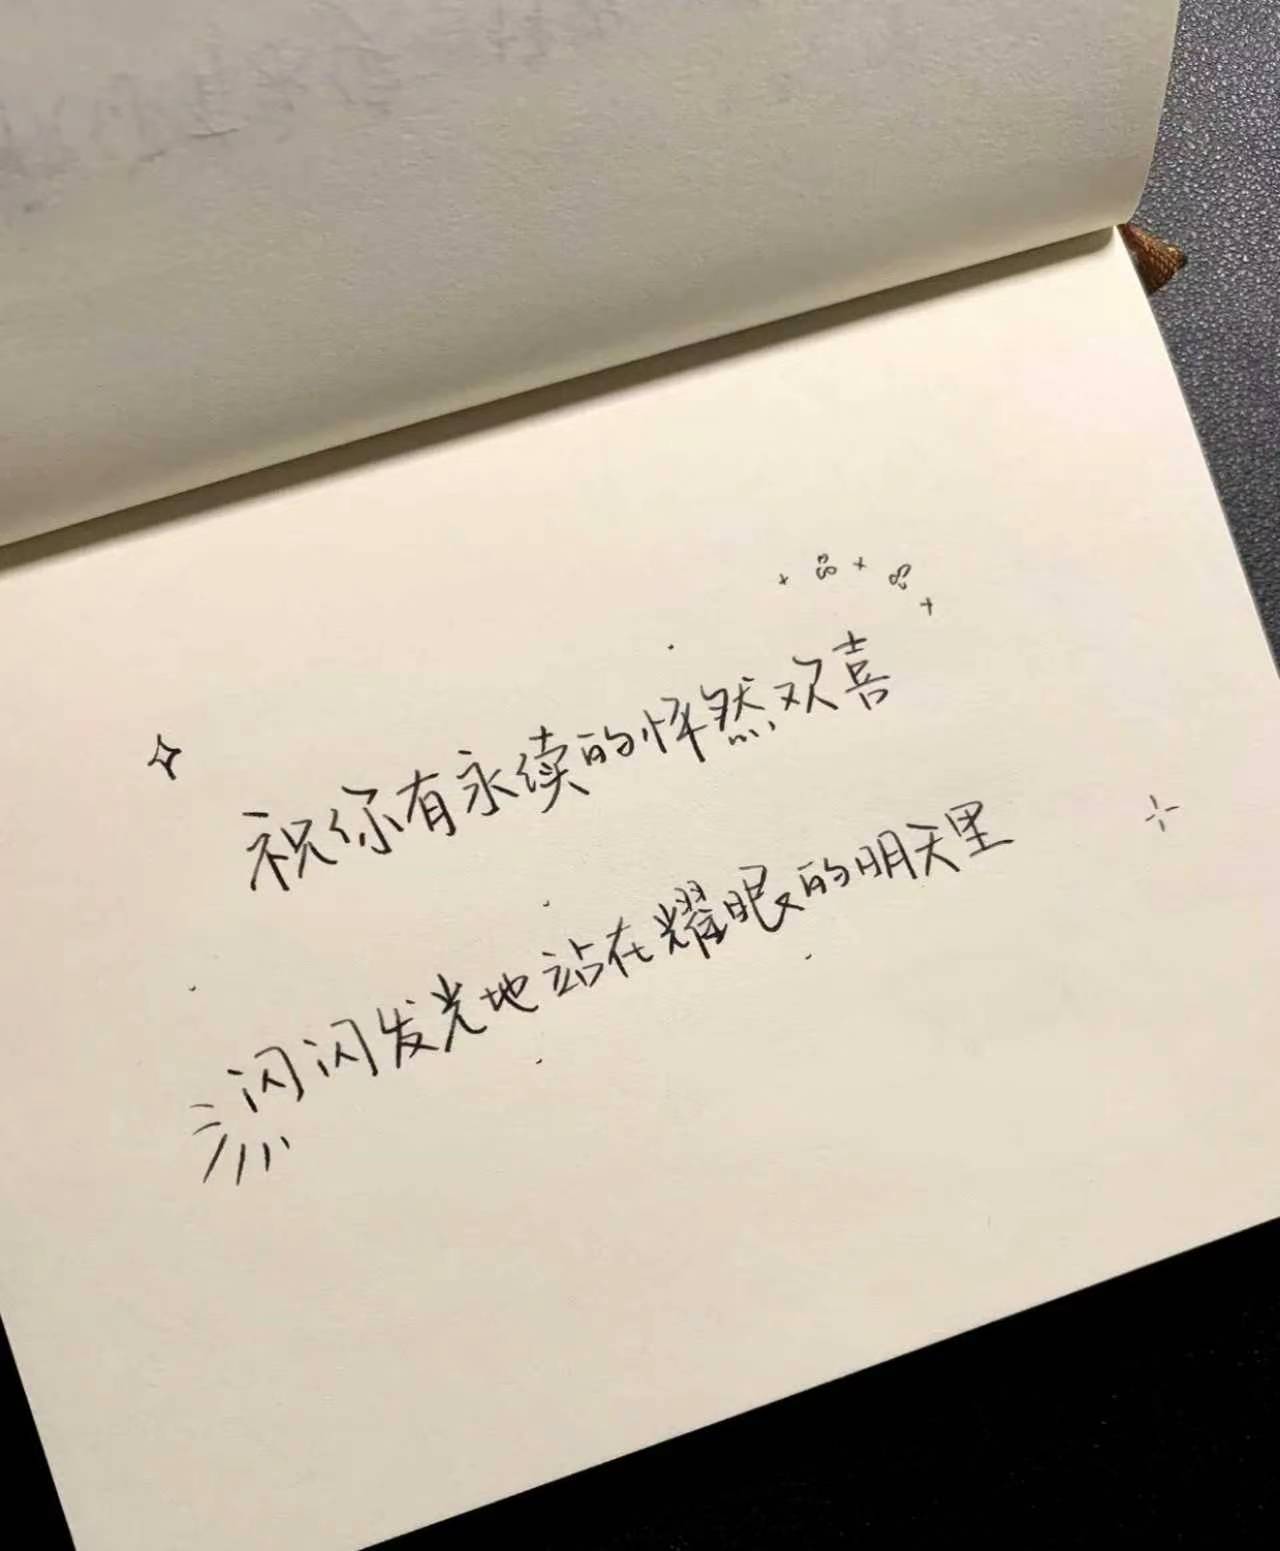 祝你有永续的怦然欢喜
闪闪发光地站在耀眼的明天里